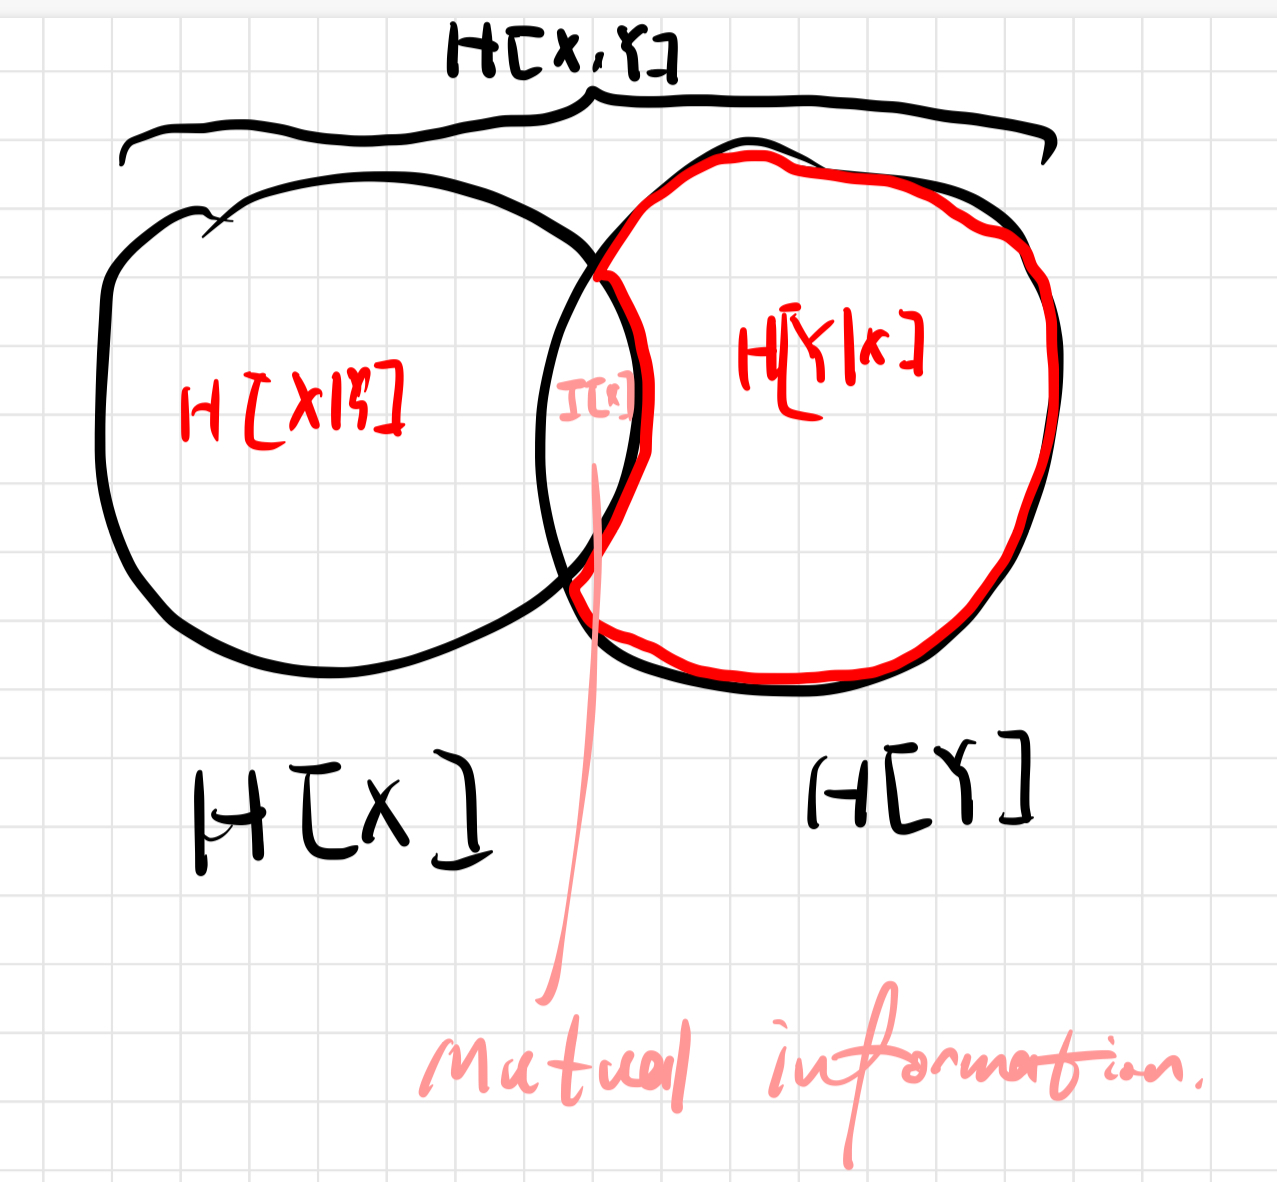 H[X,Y]
H[X|Y]
I[X]
H[Y|X]
H[X]
H[Y]
Mutual information.